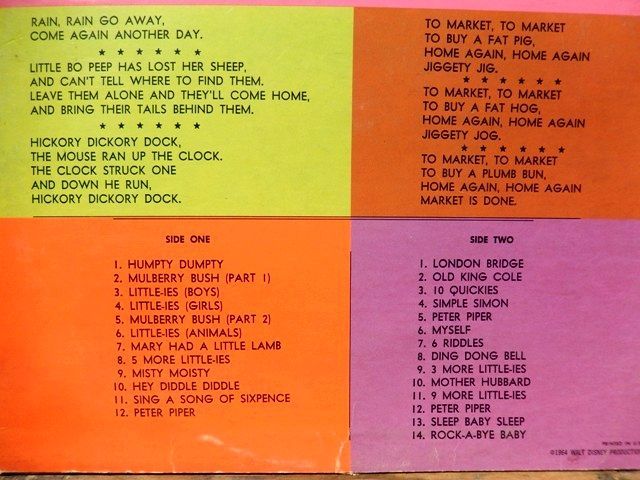 RAIN, RAIN GO AWAY,
COME AGAIN ANOTHER DAY.
★ ★ ★ ★ ★ ★
LITTLE BO PEEP HAS LOST HER SHEEP,
AND CAN'T TELL WHERE TO FIND THEM.
LEAVE THEM ALONE AND THEY'LL COME HOME,
AND BRING THEIR TAILS BEHIND THEM.
★ ★ ★ ★ ★ ★
HICKORY DICKORY DOCK,
THE MOUSE RAN UP THE CLOCK.
THE CLOCK STRUCK ONE
AND DOWN HE RUN,
HICKORY DICKORY DOCK.
TO MARKET, TO MARKET
TO BUY A FAT PIG,
HOME AGAIN, HOME AGAIN
JIGGETY JIG.
★ ★ ★ ★ ★ ★
TO MARKET, TO MARKET
TO BUY A FAT HOG,
HOME AGAIN, HOME AGAIN
JIGGETY JOG.
★ ★ ★ ★ ★ ★
TO MARKET, TO MARKET
TO BUY A PLUMB BUN,
HOME AGAIN, HOME AGAIN
MARKET IS DONE.
SIDE ONE
1. HUMPTY DUMPTY
2. MULBERRY BUSH (PART 1)
3. LITTLE-IES (BOYS)
4. LITTLE-IES (GIRLS)
5. MULBERRY BUSH (PART 2)
6. LITTLE-IES (ANIMALS)
7. MARY HAD A LITTLE LAMB
8. 5 MORE LITTLE-IES
9. MISTY MOISTY
10. HEY DIDDLE DIDDLE
11. SING A SONG OF SIXPENCE
12. PETER PIPER
SIDE TWO
1. LONDON BRIDGE
2. OLD KING COLE
3. 10 QUICKIES
4. SIMPLE SIMON
5. PETER PIPER
6. MYSELF
7. 6 RIDDLES
8. DING DONG BELL
9. 3 MORE LITTLE-IES
10. MOTHER HUBBARD
11. 9 MORE LITTLE-IES
12. PETER PIPER
13. SLEEP BABY SLEEP
14. ROCK-A-BYE BABY
PRINTED IN
©1964 WALT DISNEY